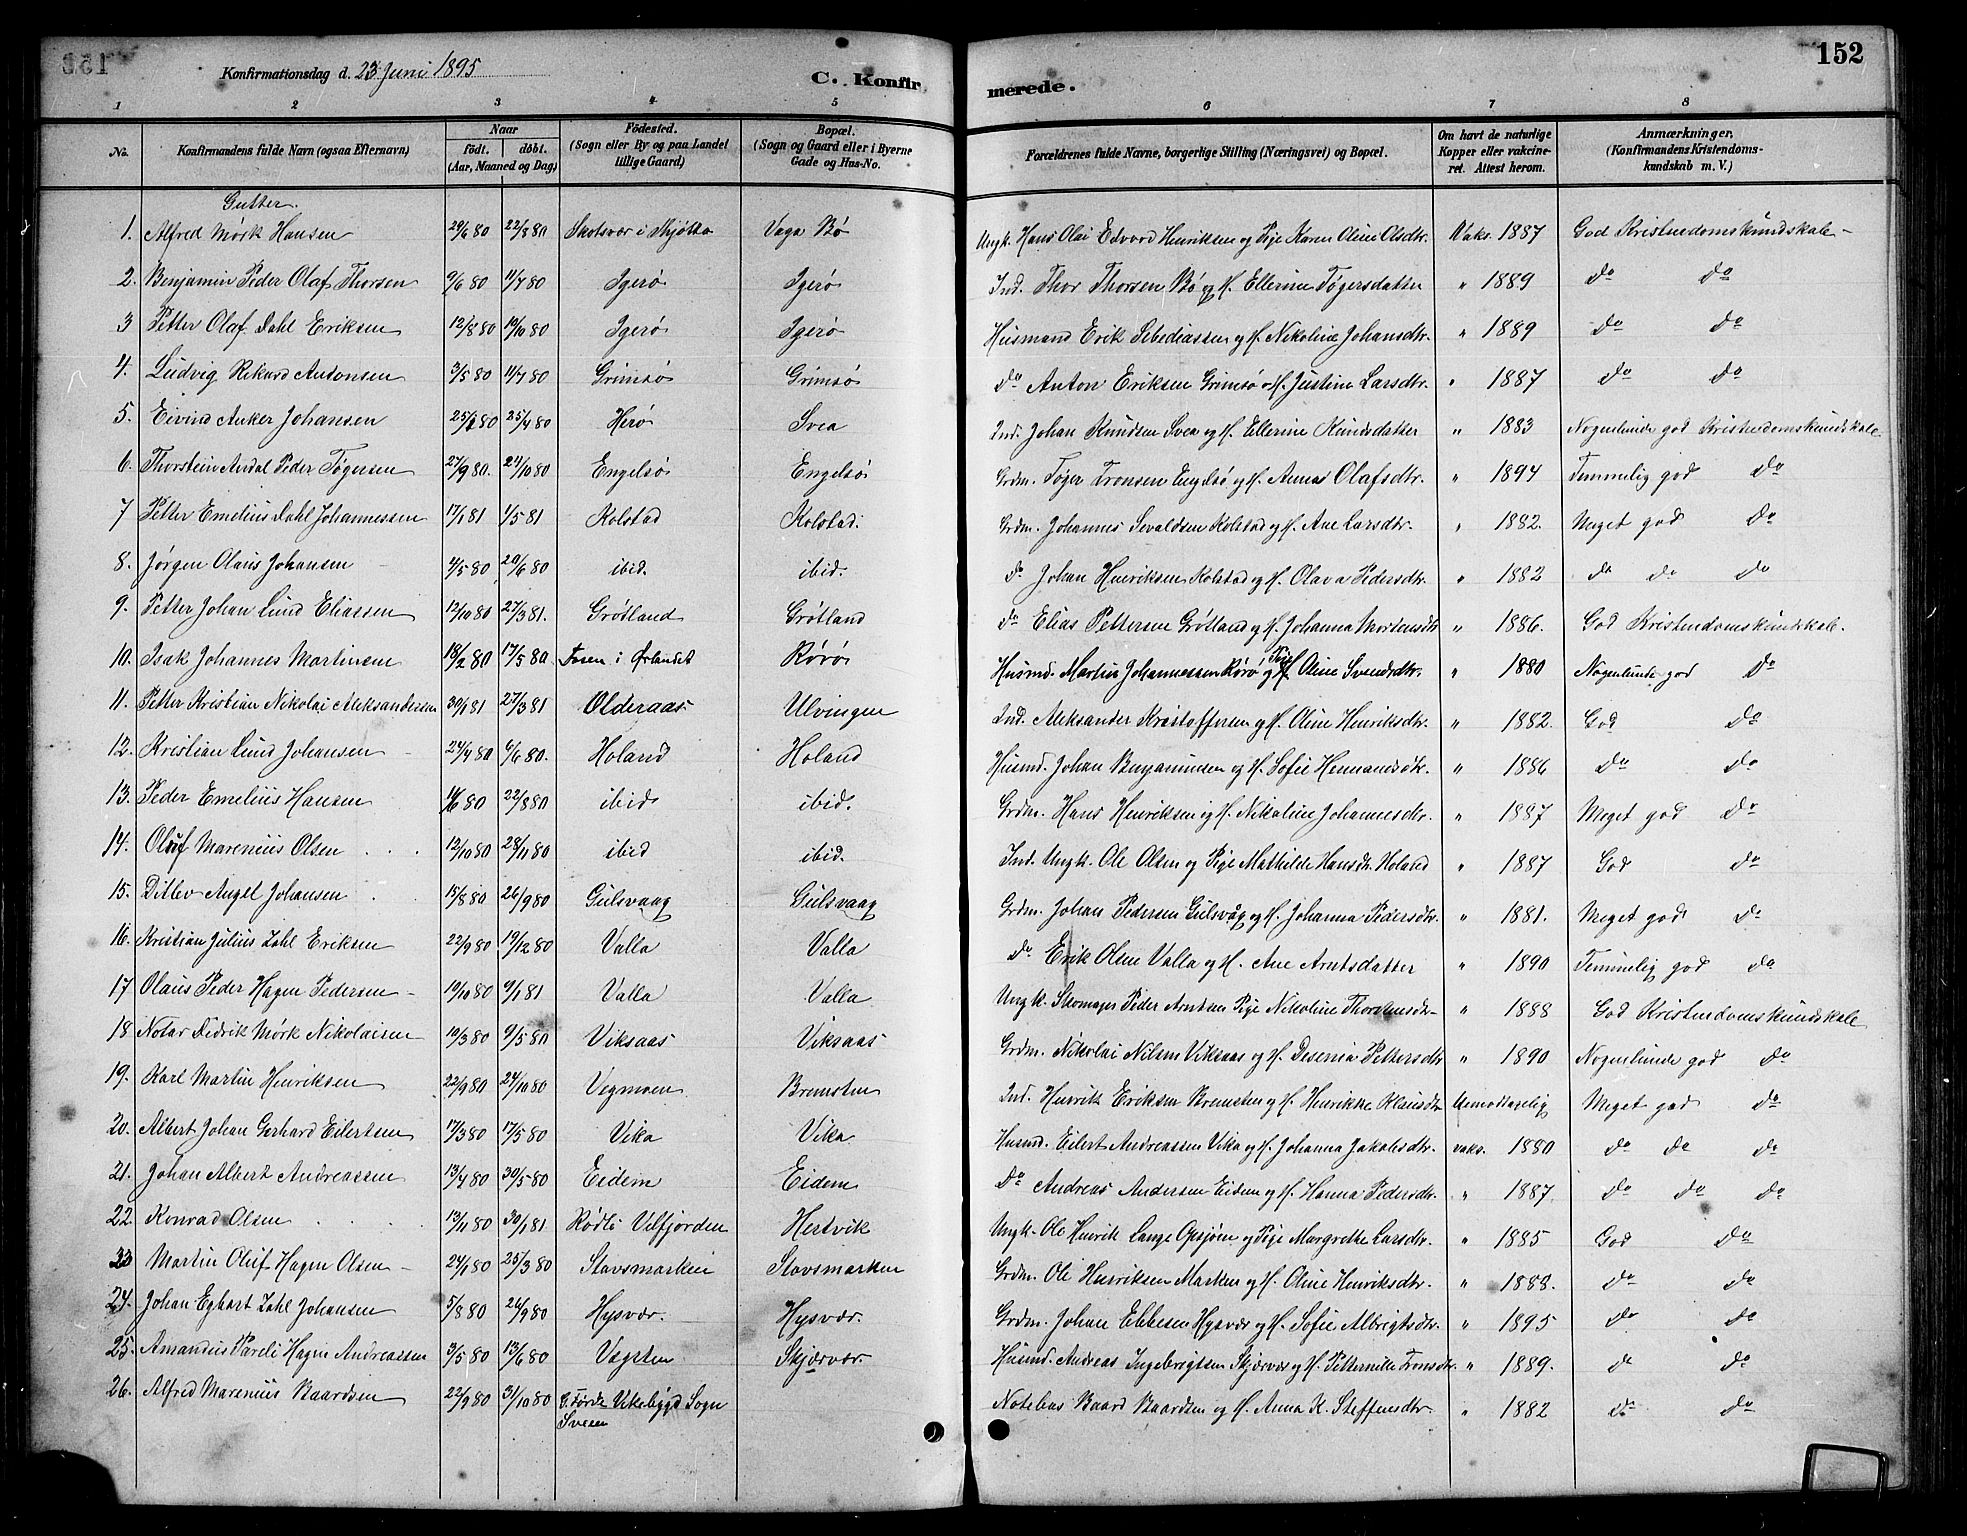 Konfirmationsdag d. 23 Juni 1895
C. Konfirmerede.
152
1 2 3 4 5 6 7 8
No. | Konfirmandens fulde Navn (ogsaa Efternavn) | Naar født. døbt. (Aar, Maaned og Dag) | Fødested. (Sogn eller By og paa Landet tillige Gaard) | Bopæl. (Sogn og Gaard eller i Byerne Gade og Hus-No. | Forældrenes fulde Navne, borgerlige Stilling (Næringsvei) og Bopæl. | Om havt de naturlige Kopper eller vakcineret. Attest herom. | Anmærkninger. (Konfirmandens Kristendomskundskab m. V.)
Gutter.
1. Alfred Mørk Hansen | 29/6 80 | 22/8 80 | Skotsvær i Thjøtta | Vaga Bø | Ungk. Hans Olai Edvard Henriksen og Pige Karen Oline Olsdtr. | Vaks. 1887 | God Kristendomskundskab
2. Benjamin Peder Olaf Thorsen | 9/6 80 | 11/7 80 | Igerø | Igerø | Ind. Thor Thorsen Bø og H. Ellerine Tøgersdatter | " 1889 | do do
3 Petter Olaf Dahl Eriksen | 12/8 80 | 19/10 80 | Igerø | Igerø | Husmand Erik Sebediassen og H. Nikoline Johansdtr. | " 1889 | do do
4. Ludvig Rikard Antonsen | 3/5 80 | 11/7 80 | Grimsø | Grimsø | do Anton Eriksen Grimsø og H. Justine Larsdtr. | " 1887 | do do
5. Eivind Anker Johansen | 25/1 80 | 25/4 80 | Herø | Svea | Ind. Johan Knudsen Svea og H. Ellerine Knudsdatter | " 1883 | Nogenlunde god Kristendomskundskab
6. Thorstein Ardal Peder Tøgersen | 27/9 80. | 24/10 80 | Engelsø | Engelsø | Grdm. Tøger Tronsen Engelsø og H. Anna Olafsdtr. | " 1894 | Temmelig god do
7 Petter Emelius Dahl Johannessen | 17/1 81 | 1/5 81 | Kolstad | Kolstad. | Grdm. Johannes Sevaldsen Kolstad og H. Ane Larsdtr. | " 1882. | Meget god do
8. Jørgen Olaus Johansen | 4/5 80 | 20/6 80 | ibid. | ibid. | do Johan Henriksen Kolstad og H. Olava Pedersdtr. | " 1882 | do do do
9. Petter Johan Lund Eliassen | 12/10 80 | 27/3 81. | Grøtland | Grøtland | do Elias Pettersen Grøtland og H. Johanna Mortensdtr | " 1886. | God Kristendomskundskab.
10. Isak Johannes Martinsen | 18/2 80 | 17/5 80 | Fosen i Ørlandet | Rørø | Husmd. Martin Johannessen Rørø og Pige Oline Svendsdtr. | " 1880 | Nogenlunde god do
11. Petter Kristian Nikolai Aleksandersen | 30/1 81 | 27/3 81 | Olderaas | Ulvingen | Ind. Aleksander Kristoffersen og H. Oline Henriksdtr. | " 1882. | God do
12. Kristian Lund Johansen | 24/4 80 | 6/6 80. | Holand | Holand | Husmd. Johan Benjaminsen og H. Sofie Hermansdtr. | " 1886 | do do
13. Peder Emelius Hansen | 11/6 80 | 22/8 80 | ibid. | ibid. | Grdm. Hans Henriksen og H. Nikoline Johannesdtr. | " 1887 | Meget god do
14. Oluf Marenius Olsen | 12/10 80 | 28/11 80 | ibid | ibid. | Ind. Ungk. Ole Olsen og Pige Mathilde Hansdtr. Holand | " 1887 | God do
15. Ditlev Angel Johansen | 15/8 80 | 26/9 80 | Gulsvaag | Gulsvaag | Grdm. Johan Pedersen Gulsvåg og H. Johanna Pedersdtr. | " 1881. | Meget god do
16. Kristian Julius Zahl Eriksen | 22/9 80 | 19/12 80 | Valla | Valla | do Erik Olsen Valla og H. Ane Arntsdatter | " 1890 | Temmelig god do
17 Olaus Peder Hagen Pedersen | 19/10 80 | 9/1 81 | Valla | Valla | Ungk. Skomager Peder Arntsen Pige Nikoline Thordensdtr. | " 1888 | God Kristendomskundskab
18 Notar Didrik Mørk Nikolaisen | 10/3 80 | 9/5 80 | Viksaas | Viksaas | Grdm. Nikolai Nilsen Viksaas og H. Desenia Pettersdtr | " 1890 | Nogenlunde god do
19. Karl Martin Henriksen | 22/9 80 | 24/10 80 | Vegmoen | Bremsten | Ind. Henrik Eriksen Bremsten og H. Henrikke Klausdtr | Uemodtagelig | Meget god do
20. Albert Johan Gerhard Eilertsen | 17/3 80 | 17/5 80 | Vika | Vika | Husmd. Eilert Andreassen Vika og H. Johanna Jakobsdtr. | vaks. 1880 | do do do
21. Johan Albert Andreassen | 13/4 80 | 30/5 80 | Eidem | Eidem | do Andreas Andersen Eidem og H. Hanna Pedersdtr. | " 1887. | do do do
22. Konrad Olsen | 13/11 80 | 30/1 81 | Rødli Velfjorden | Hertvik | Ungk. Ole Henrik Lange Opsjøen og Pige Margrethe Larsdtr. | " 1885 | God do
23 Martin Oluf Hagen Olsen | 24/1 80 | 25/3 80 | Stavsmarken | Stavsmarken | Grdm. Ole Henriksen Marken og H. Oline Henriksdtr. | " 1888. | do do
24. Johan Eghart Zahl Johansen | 5/8 80 | 26/9 80 | Hysvær. | Hysvær. | Grdm. Johan Ebbesen Hysvær og H. Sofie Albrigtsdtr. | " 1895 | do do
25. Amandus Pareli Hagen Andreassen | 3/5 80 | 13/6 80 | Vegsten | Skjærvær. | Husmd. Andreas Ingebrigtsen Skjærvær og H. Petternille Tronsdtr. | " 1889. | do do
26. Alfred Marenius Baardsen | 22/9 80 | 31/10 80 | G. Førde Vikebygd Sogn Sveen | Notebas Baard Baardsen og H. Anna K. Steffensdtr. | " 1882 | do do